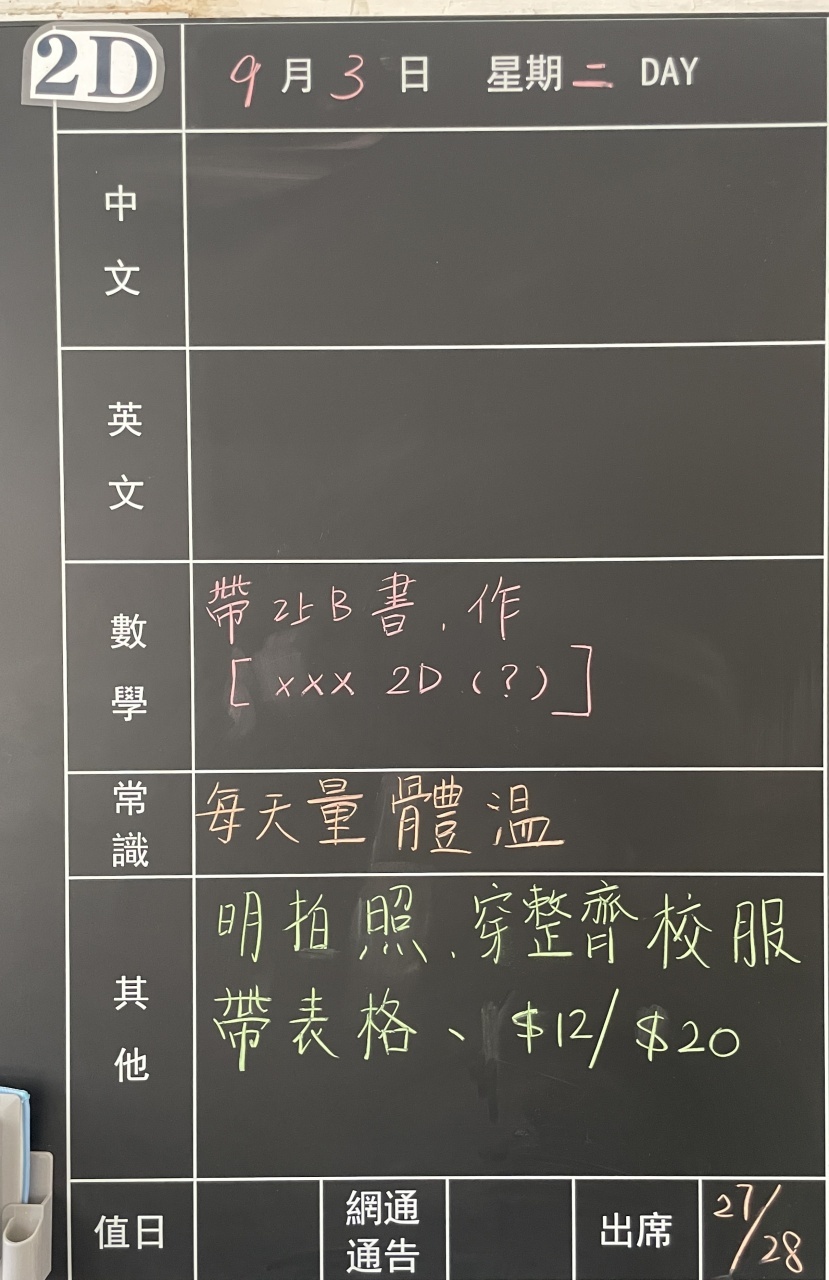 2D
9月3日 星期二 DAY
中文
英文
數學
帶2上B書，作
[xxx 2D (?)]
常識
每天量體溫
其他
明拍照，穿整齊校服
帶表格、$12/$20
值日 網通通告 出席 27/28